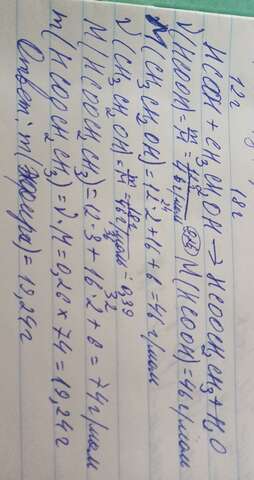 12г 18г
HCOOH + CH3CH2OH → HCOOCH2CH3 + H2O
ν(HCOOH = m/M = 12/46г/моль 0,26 M(HCOOH) = 46г/моль
M(CH3CH2OH) = 12·2 + 16 + 6 = 46 г/моль
24
ν(CH3CH2OH = m/M = 18г/46г/моль = 0,39
M(HCOOCH2CH3) = 12·3 + 16·2 + 6 = 74г/моль
32
m(HCOOCH2CH3) = ν·M = 0,26 × 74 = 19,24г
Ответ: m(эфира) = 19,24г